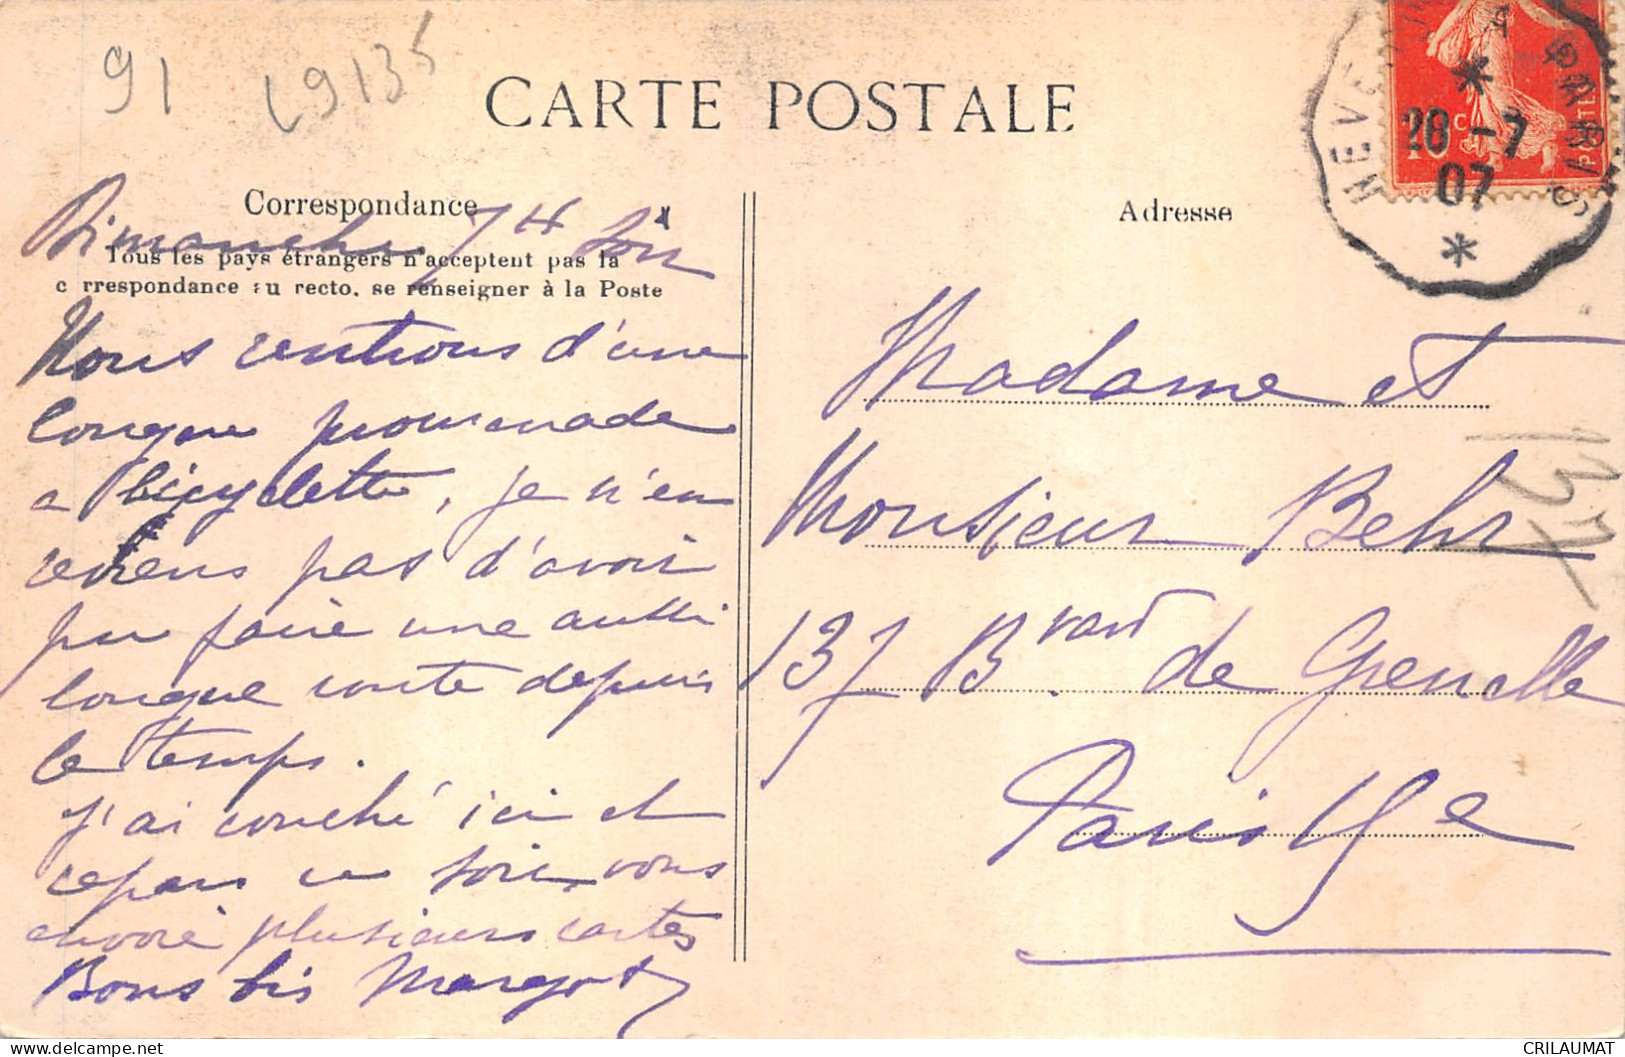 91 L9135
CARTE POSTALE
Correspondance
Dimanche 7H Soir
Tous les pays étrangers n'acceptent pas la
c rrespondance au recto. se renseigner à la Poste
Nous rentrons d'une
longue promenade
a bicyclette, je n'en
reviens pas d'avoir
pu faire une aussi
longue route depuis
le temps.
J'ai couché ici et
repars ce soir, vous
envoie plusieurs cartes
Bons bis Margot
Adresse
Madame et
Monsieur Behr
137 Bvard de Grenelle
Paris 15e
137
NEVE
PARIS
28 -7
07
10c
POSTES
CRILAUMAT